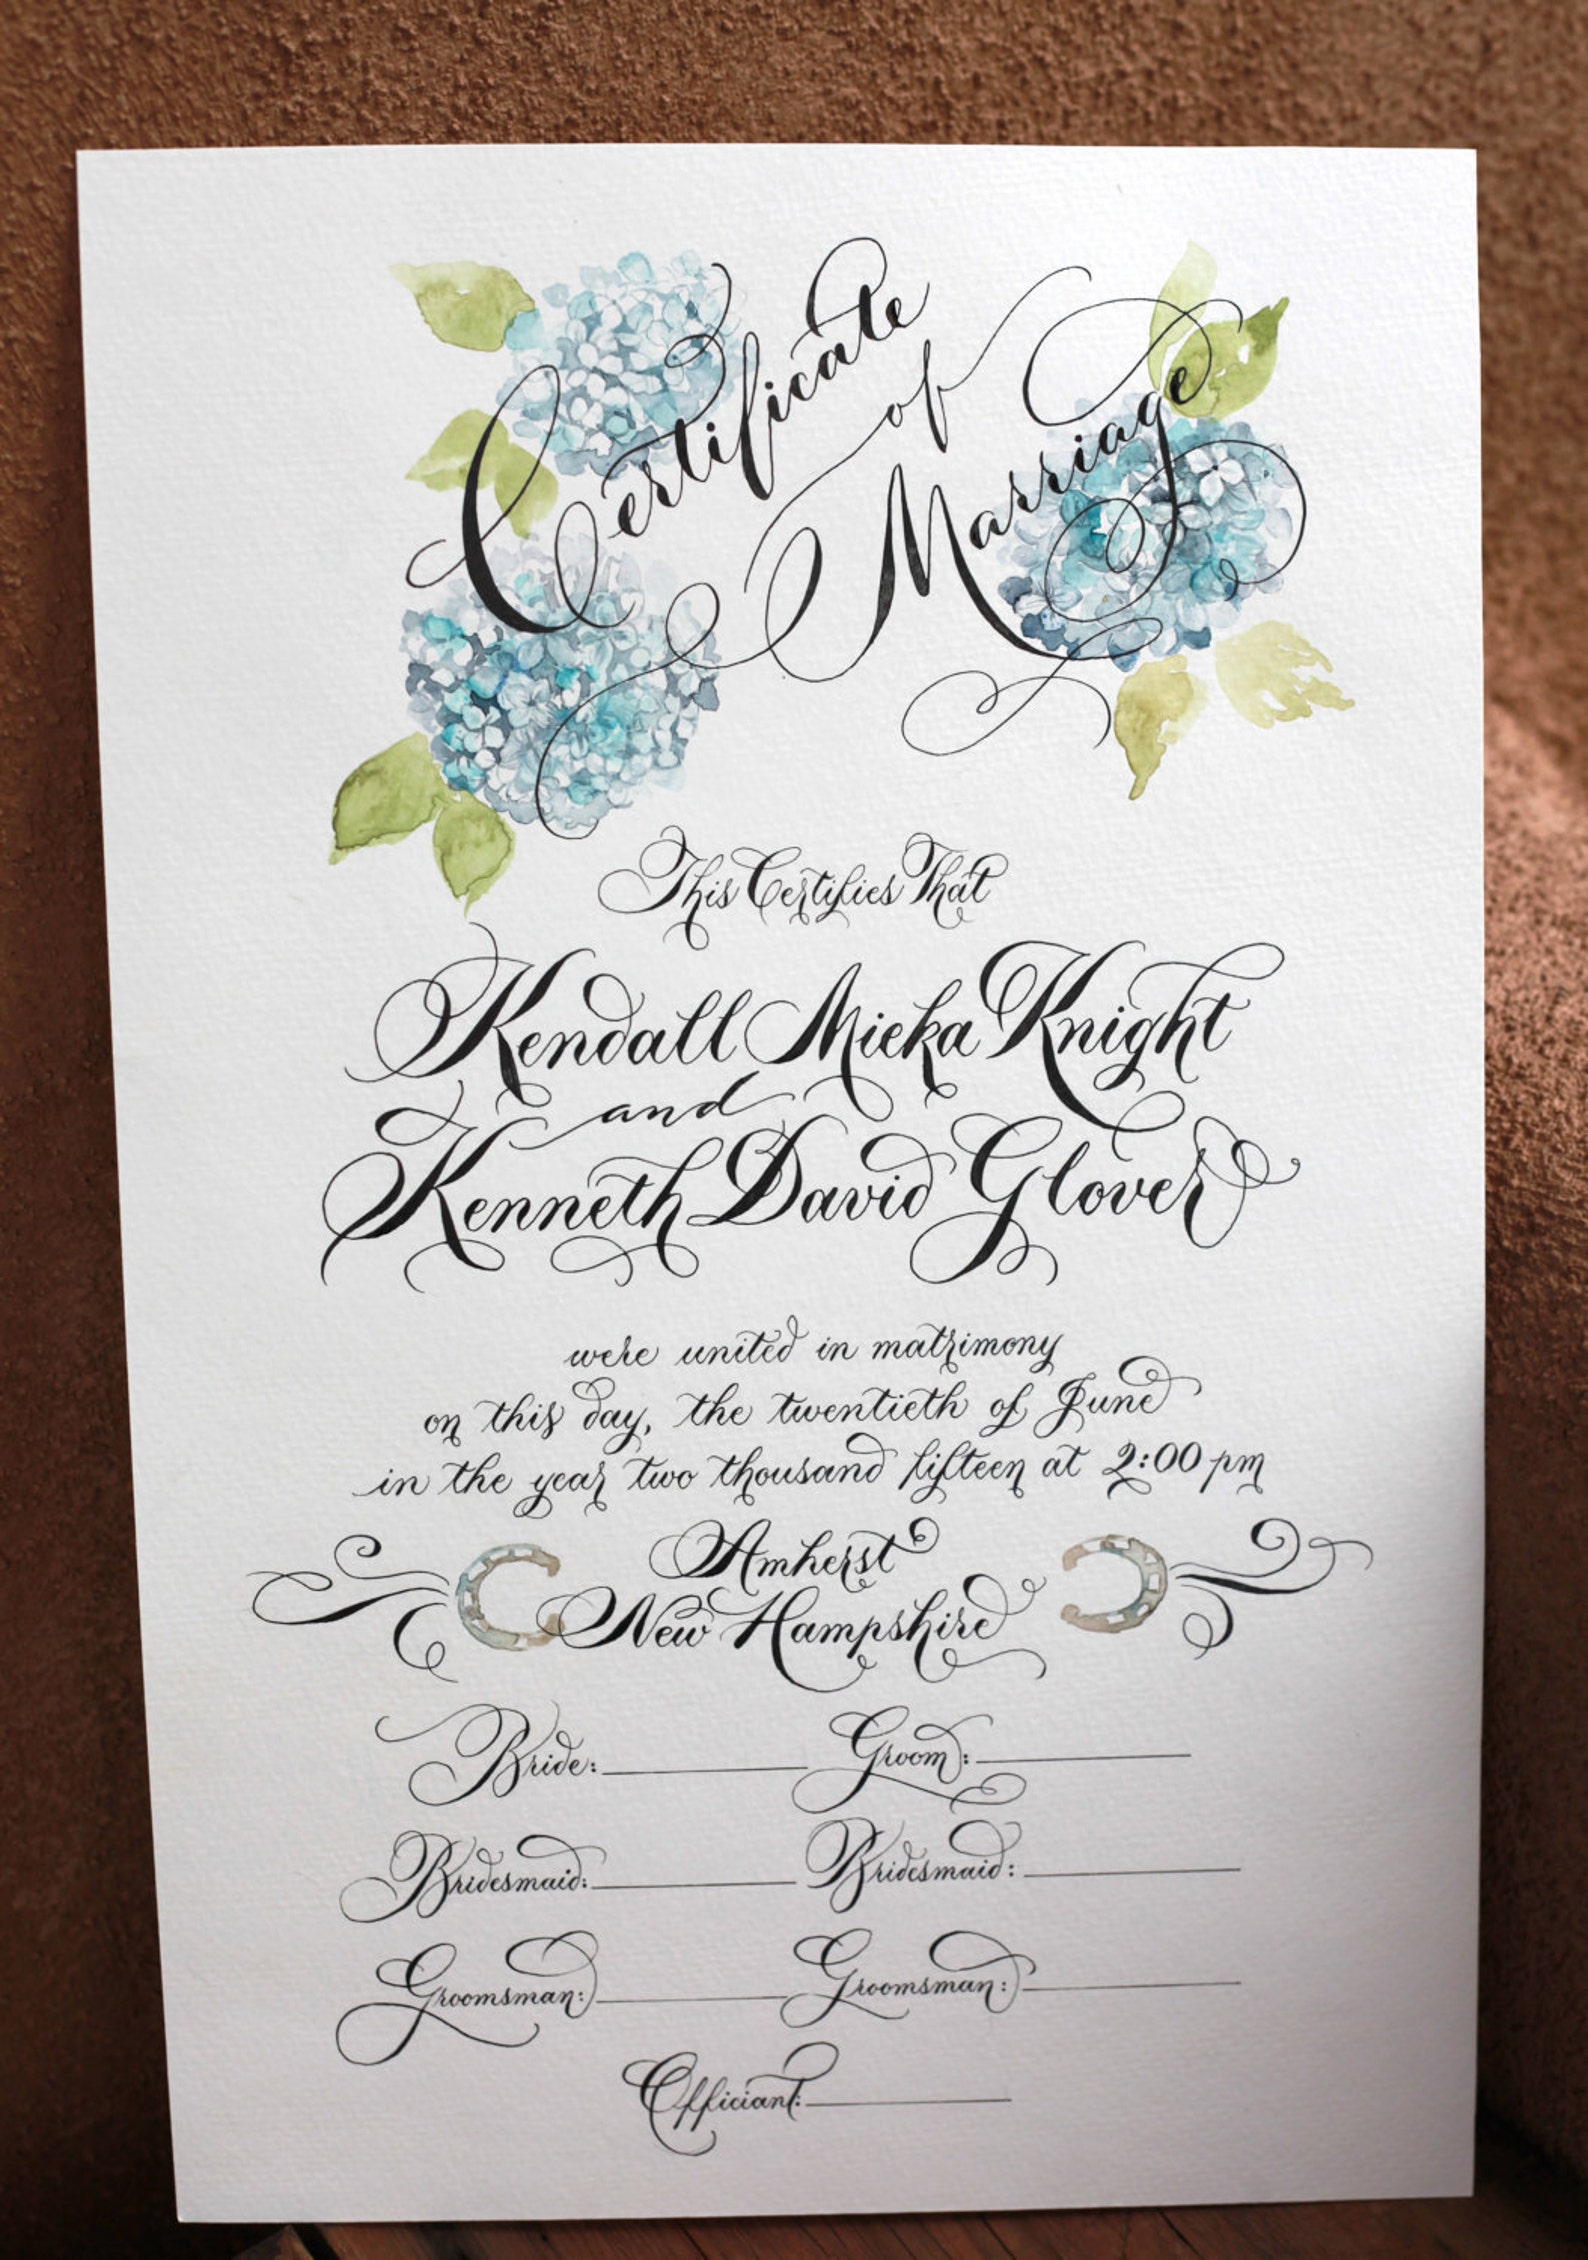 Certificate
of
Marriage
This Certifies That
Kendall Mieka Knight
and
Kenneth David Glover
were united in matrimony
on this day, the twentieth of June
in the year two thousand fifteen at 2:00 pm
Amherst
New Hampshire
Bride: Groom:
Bridesmaid: Bridesmaid:
Groomsman: Groomsman:
Officiant: